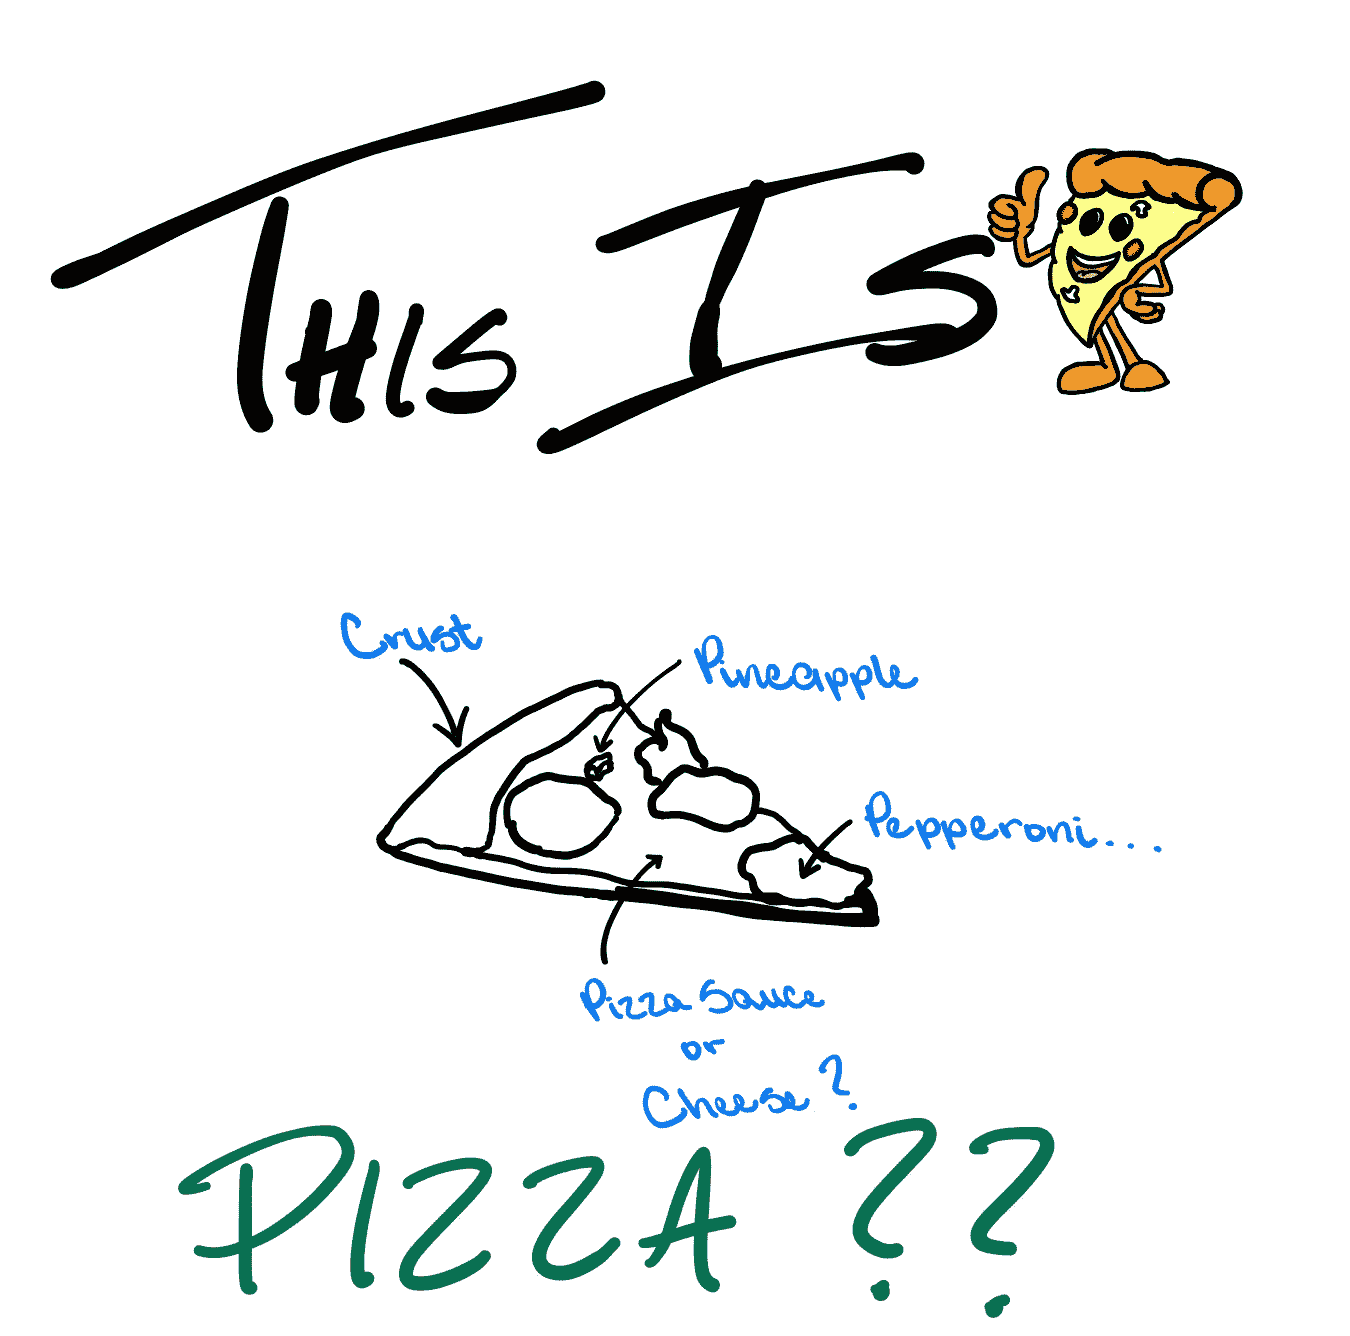 THIS IS
Crust
Pineapple
Pepperoni...
Pizza Sauce
or
Cheese?
PIZZA ??